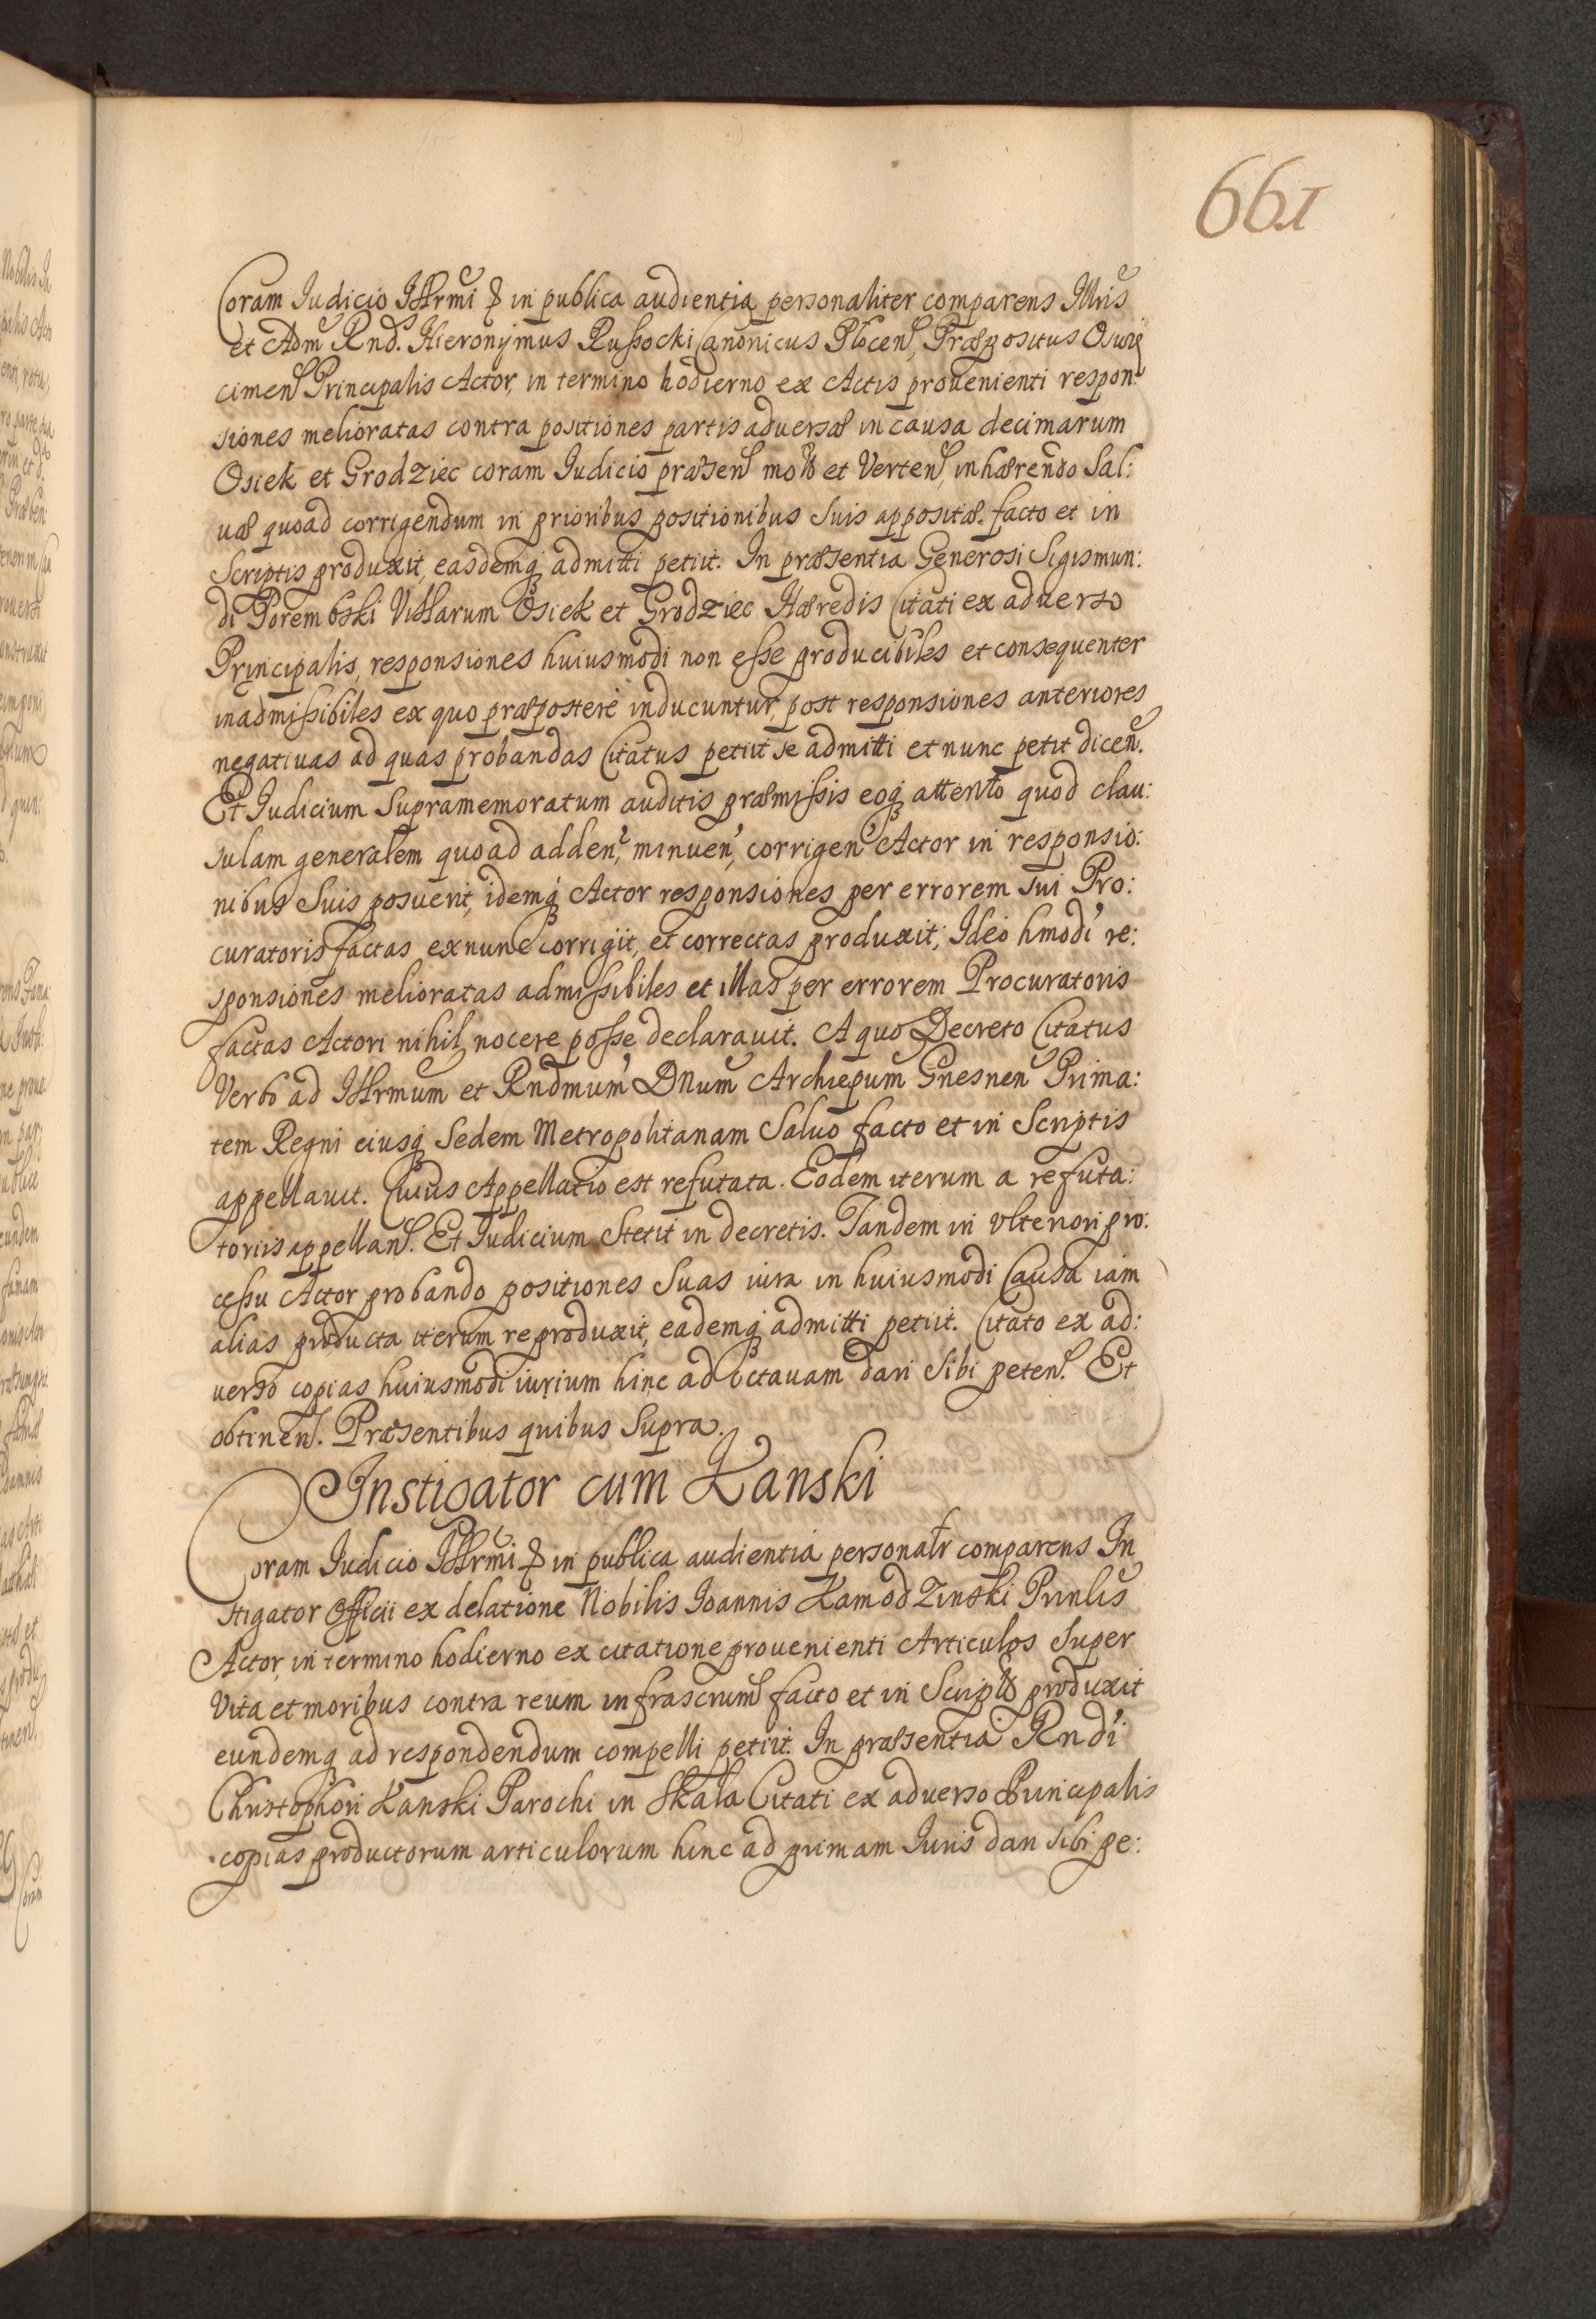 661
Coram Iudicio Illrmi & in publica audientia personaliter comparens Illris
et Adm Rnd. Hieronymus Russocki Canonicus Plocens, Præpositus Oswię
cimens Principalis Actor, in termino hodierno ex Actis prouenienti respon:
siones melioratas contra positiones partis aduersæ in causa decimarum
Osiek et Grodziec coram Iudicio præsens mots et Vertens, inhærendo Sal:
uæ quoad corrigendum in prioribus positionibus Suis appositæ facto et in
Scriptis produxit, easdemq admitti petiit. In præsentia Generosi Sigismun:
di Porembski Villarum Osiek et Grodziec Hæredis Citati ex aduerso
Principalis, responsiones huiusmodi non esse producibiles et consequenter
inadmissibiles ex quo præpostere inducuntur, post responsiones anteriores
negatiuas ad quas probandas Citatus petiit se admitti et nunc petit dicen.
Et Iudicium Supramemoratum auditis præmissis eoq attento quod clau:
sulam generalem quoad adden, minuen, corrigen Actor in responsio:
nibus Suis posuerit, idemq Actor responsiones per errorem sui Pro:
curatoris factas exnunc corrigit, et correctas produxit; Ideo hmodi re:
sponsiones melioratas admissibiles et illas per errorem Procuratoris
factas Actori nihil nocere posse declarauit. A quo Decreto Citatus
Verbo ad Illrmum et Rndmum Dnum Archiepum Gnesnen Prima:
tem Regni eiusq Sedem Metropolitanam Saluo facto et in Scriptis
appellauit. Cuius Appellatio est refutata. Eodem iterum a refuta:
toriis appellans. Et Iudicium Stetit in decretis. Tandem in vlteriori pro:
cessu Actor probando positiones Suas iura in huiusmodi Causa iam
alias producta iterum reproduxit, eademq admitti petiit. Citato ex ad:
uerso copias huiusmodi iurium hinc ad octauam dari Sibi petens. Et
obtinens. Præsentibus quibus Supra.
Instigator cum Łanski
Coram Iudicio Illrmi & in publica audientia personalr comparens In
stigator Officii ex delatione Nobilis Ioannis Kamodzinski Prinlis
Actor, in termino hodierno ex citatione prouenienti Articulos Super
Vita et moribus contra reum infrascrums facto et in Scripts produxit
eundemq ad respondendum compelli petiit. In præsentia Rndi
Christophori Łanski Parochi in Skała Citati ex aduerso Principalis
copias productorum articulorum hinc ad primam Iuris dari sibi pe: